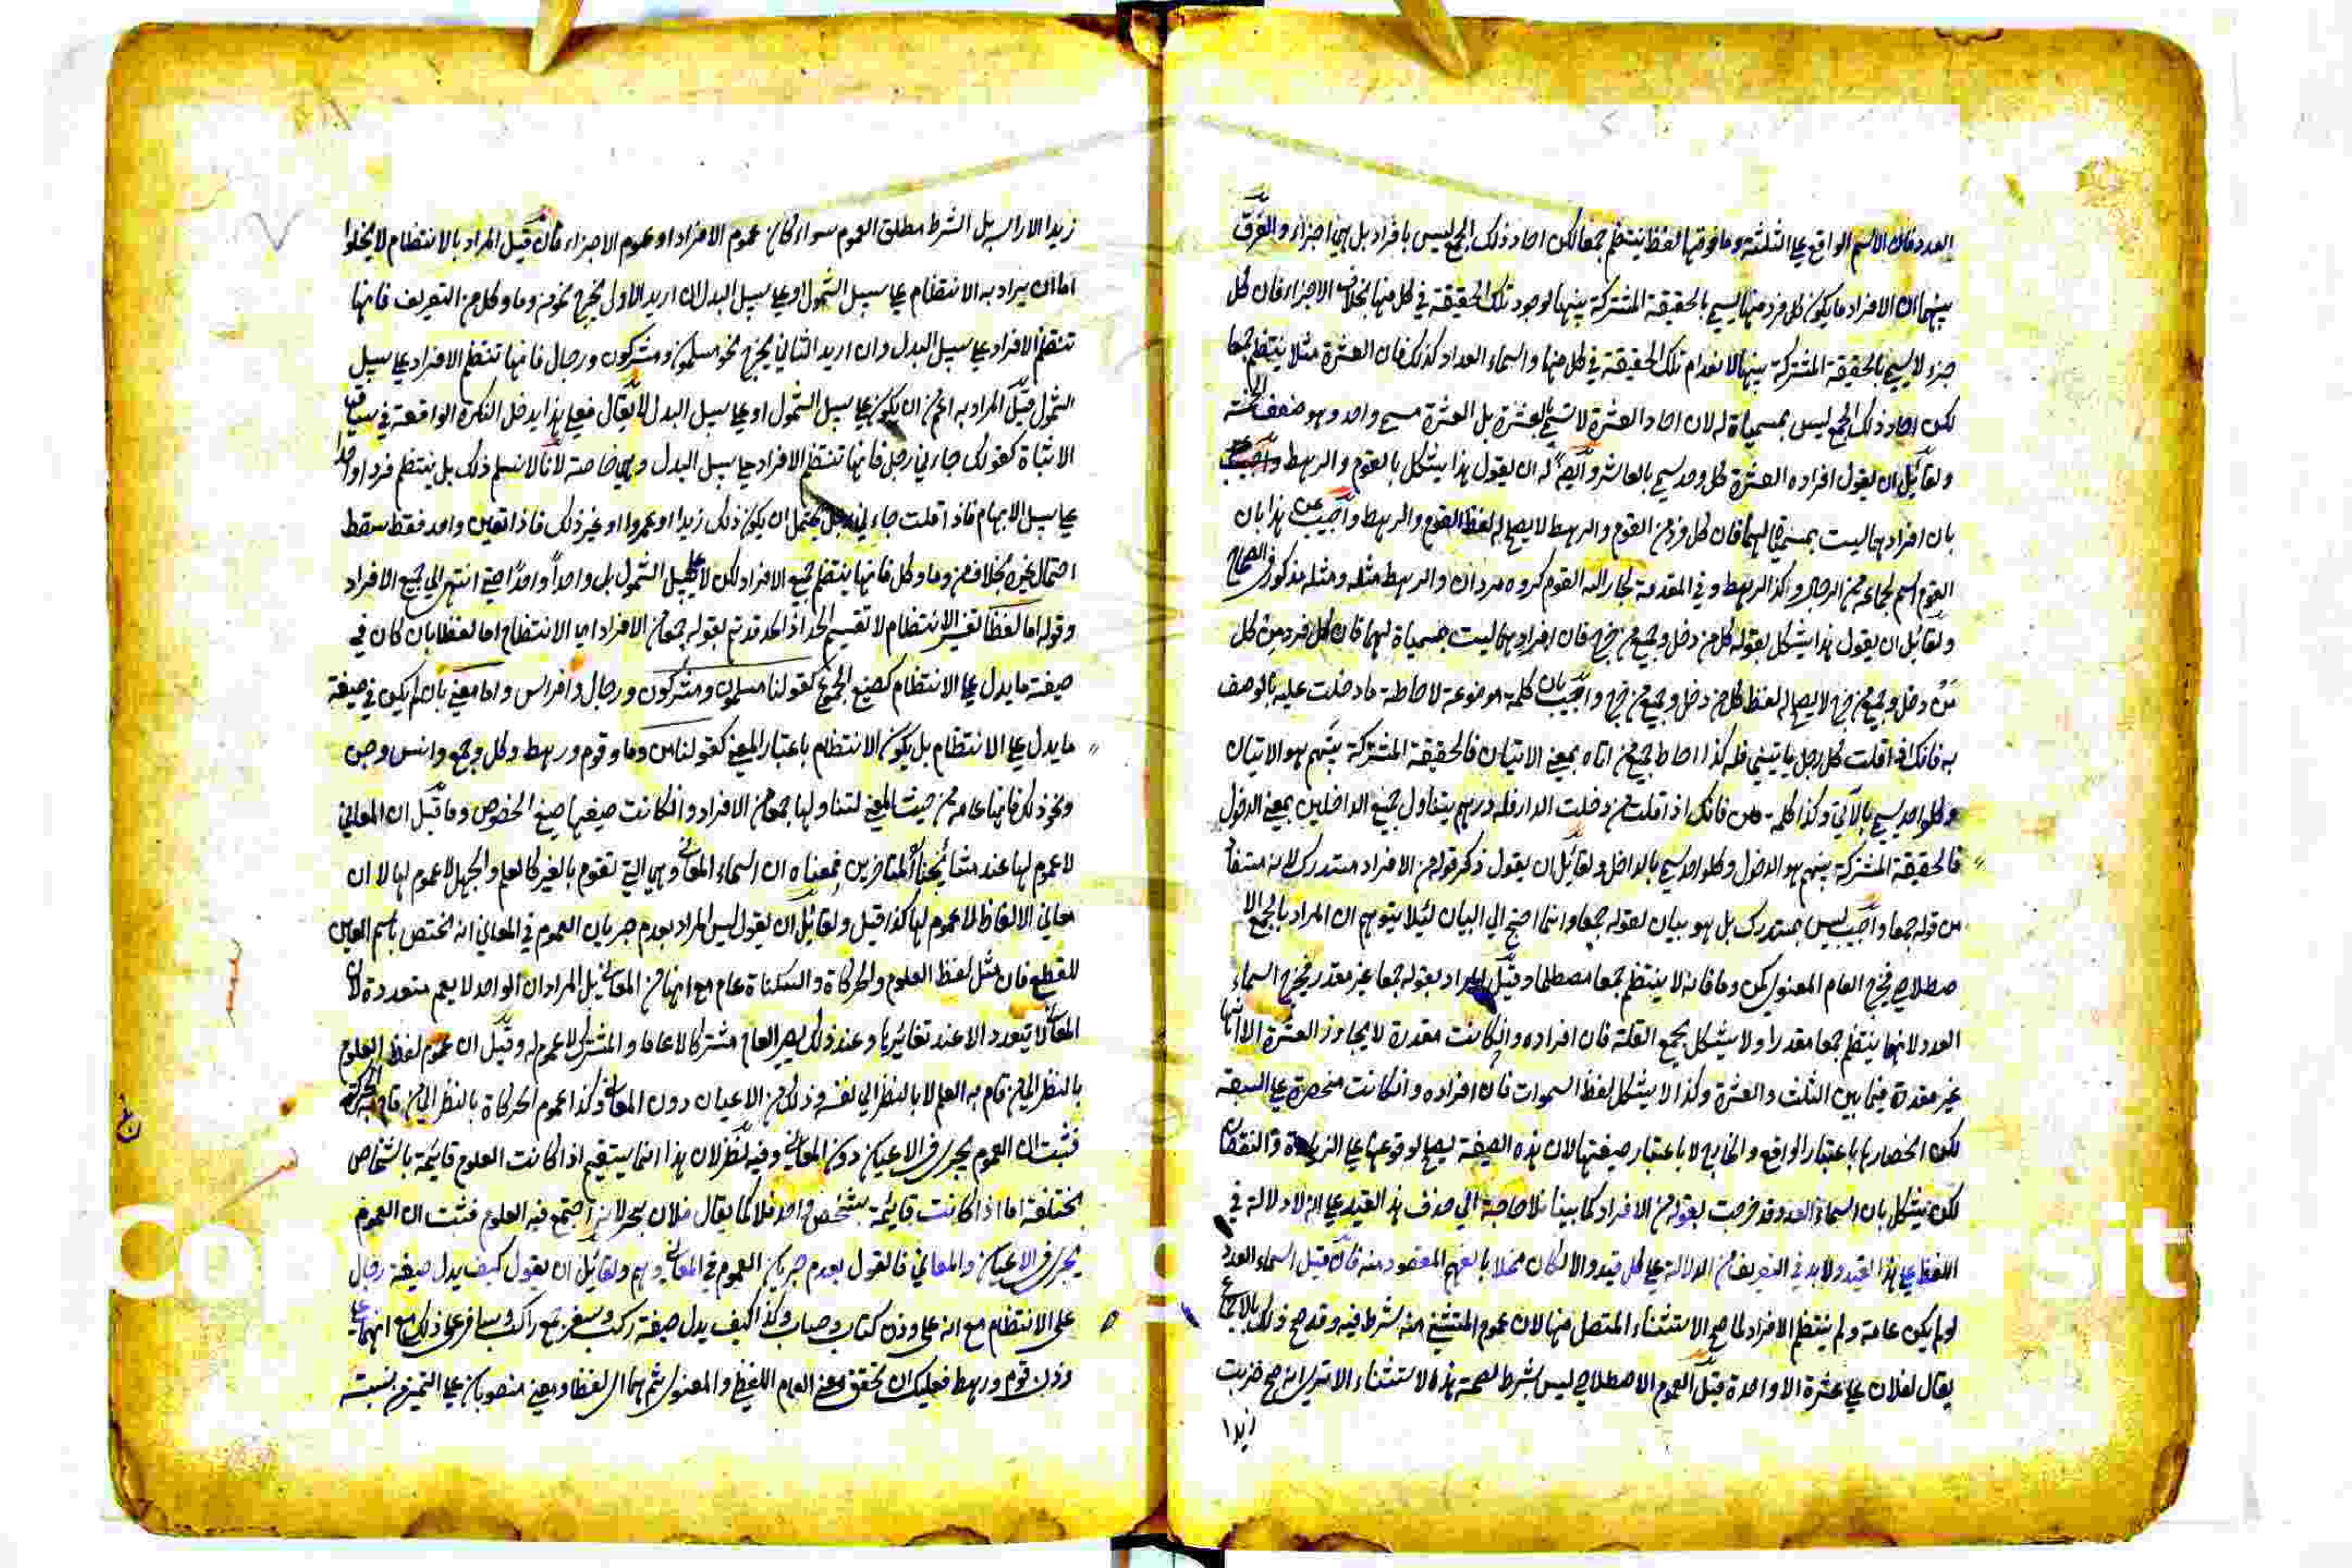 العدد فان الاسم الواقع علي الثلثة وما فوقها لفظ ينتظم جمعا لكن احاد ذلك الجمع ليس بافراد بل هي اجزاء والفرق
بينهما ان الافراد ما يكون كل فرد منها يسمي بالحقيقة المشتركة بينها لوجود تلك الحقيقة في كل منها بخلاف الاجزاء فان كل
جزء لا يسمي بالحقيقة المشتركة بينها لانعدام تلك الحقيقة في كل منها واسماء العداد كذلك فان العشرة مثلا ينتظم جمعا
لكن احاد ذلك الجمع ليس بمسمياة له لان احاد العشرة لا تسمي بالعشرة بل العشرة مسمي واحد وهو ضعف الخمسة
ولقائل ان يقول افراده العشرة كل واحد يسمي بالعاشر وايضا له ان يقول هذا يشكل بالقوم والرهط
بان افرادهما ليست بمسمياة لهما فان كل فرد من القوم والرهط لا يصح له لفظ القوم والرهط واجيب عن هذا بان
القوم اسم لجماعة من الرجال وكذا الرهط وفي المقدمة لجار الله القوم كروه مردان والرهط مثله ومثله مذكور في الصحاح
ولقائل ان يقول هذا يشكل بقوله كل من دخل وجميع من خرج فان افرادهما ليست بمسمياة لهما فان كل فرد من كل
من دخل وجميع من خرج لا يصح له لفظ كل من دخل وجميع من خرج واجيب بان كلمة موضوعة لاحاطة ما دخلت عليه بالوصف
به فانك اذا قلت كل رجل ياتيني فله كذا احاط جميع من اتاه بمعني الاتيان فالحقيقة المشتركة بينهم هو الاتيان
وكل واحد يسمي بالآتي وكذا كلمة من فانك اذا قلت من دخلت الدار فله درهم يتناول جميع الداخلين بمعني الدخول
فالحقيقة المشتركة بينهم هو الدخول وكل واحد يسمي بالداخل ولقائل ان يقول ذكر قوله من الافراد مستدرك لانه مستفاد
من قوله جمعا واجيب ليس بمستدرك بل هو بيان لقوله جمعا وانما احتج الي البيان لئلا يتوهم ان المراد بالجمع الا
صطلاحي فيخرج العام المعنوي كمن وما فانه لا ينتظم جمعا مصطلحا وقيل المراد بقوله جمعا غير مقدر فيخرج اسماء
العدد لانها ينتظم جمعا مقدرا ولا يشكل بجمع القلة فان افراده وان كانت مقدرة لا يجاوز العشرة الا انها
غير مقدرة فيما بين الثلث والعشرة وكذا لا يشكل لفظ السموات فان افراده وان كانت منحصرة علي السبعة
لكن انحصارها باعتبار الواقع والخارج لا باعتبار صيغتها لان هذه الصيغة يصح لوقوعها علي الزيادة والنقصان
لكن يشكل بان اسماء العدد قد خرجت بقوله من الافراد كما بينا فلا حاجة الي حذف هذ القيد علي انه لا دلالة في
اللفظ علي هذا القيد ولا بد في التعريف من الدلالة علي كل قيد والا لكان مخلا بالفهم المقصود منه فان قيل اسماء العدد
لو لم يكن عامة ولم ينتظم الافراد لما صح الاستثناء المتصل منها لان عموم المستثني منه شرط فيه وقد صح ذلك بالاجماع
يقال لفلان علي عشرة الا واحدة قيل العموم الاصطلاحي ليس بشرط لصحة هذه الاستثناء الا تري انه صح ضربت
زيدا
زيدا الا راسه بل الشرط مطلق العموم سواء كان عموم الافراد او عموم الاجزاء فان قيل المراد بالانتظام لا يخلوا
اما ان يراد به الانتظام علي سبيل الشمول او علي سبيل البدل ان اريد الاول يخرج نحو من وما وكل من التعريف فانها
تنتظم الافراد علي سبيل البدل وان اريد الثاني يخرج نحو مسلمون ومشركون ورجال فانها تنتظم الافراد علي سبيل
الشمول قيل المراد به اعم من ان يكون علي سبيل الشمول او علي سبيل البدل لا يقال فعلي هذا يدخل النكرة الواقعة في سياق
الاثباة كقولك جاءني رجل فانها تنتظم الافراد علي سبيل البدل وهي خاصة لانا لا نسلم ذلك بل ينتظم فردا واحدا
علي سبيل الابهام فاذا قلت جاءني رجل يحتمل ان يكون ذلك زيدا او عمروا او غير ذلك فاذا تعين واحد فقط سقط
احتمال غيره بخلاف من وما وكل فانها ينتظم جميع الافراد لكن لا علي سبيل الشمول بل واحدا واحدا حتي انتهي الي جميع الافراد
وقوله اما لفظا تفسير الانتظام لا تقسيم الحد اذ الحد قد تم بقوله جمعا من الافراد اي الانتظام اما لفظا بان كان في
صيغة ما يدل علي الانتظام كصيغ الجموع كقولنا مسلمون ومشركون ورجال وافراس واما معني بان لم يكن في صيغة
ما يدل علي الانتظام بل يكون الانتظام باعتبار المعني كقولنا من وما وقوم ورهط وكل وجمع وانس وجن
ونحو ذلك فانها عامة من حيث المعني لتناولها جمعا من الافراد وان كانت صيغها صيغ الخصوص وما قيل ان المعاني
لا عموم لها عند مشايخنا المتاخرين فمعناه ان اسماء المعاني وهي التي تقوم بالغير كالعلم والجهل لا عموم لها لا ان
معاني الالفاظ لا عموم لها كذا قيل ولقائل ان يقول ليس المراد بعدم جريان العموم في المعاني انه يختص باسم العين
للقطع فان مثل لفظ العلوم والحركاة والسكناة عام مع انها من المعاني بل المراد ان الواحد لا يعم متعددة لان
المعاني لا يتعدد الا عند تغايرها وعند ذلك يصير العام مشتركا لا عاما والمشترك لا عموم له وقيل ان عموم لفظ العلوم
بالنظر الي من قام به العلم لا بالنظر الي نفسه وذلك من الاعيان دون المعاني وكذا عموم الحركاة بالنظر الي من قام به الحركة
فثبت ان العموم يجري في الاعيان دون المعاني وفيه نظر لان هذا انما يستقيم اذا كانت العلوم قائمة باشخاص
مختلفة اما اذا كانت قائمة بشخص واحد فلا كما يقال فلان بحر لانه اجتمع فيه العلوم فثبت ان العموم
يجري في الاعيان والمعاني فالقول بعدم جريان العموم في المعاني وهم ولقائل ان يقول كيف يدل صيغة رجال
علي الانتظام مع انه علي وزن كتاب وحساب وكذا كيف يدل صيغة ركب وسفر جمع راكب ومسافر علي ذلك مع انهما علي
وزن قوم ورهط فعليك ان تحقق معني العام اللفظي والمعنوي ثم هما اي لفظا ومعني منصوبان علي التميز عن نسبة